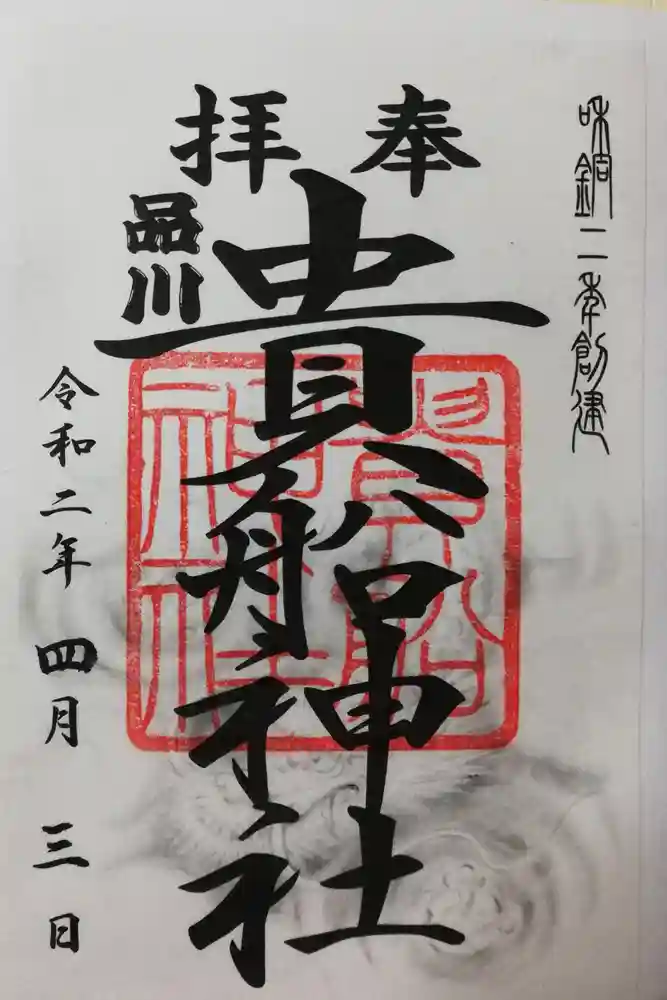 和銅二年創建
奉拝
品川
貴船神社
貴船
神社
令和二年四月三日